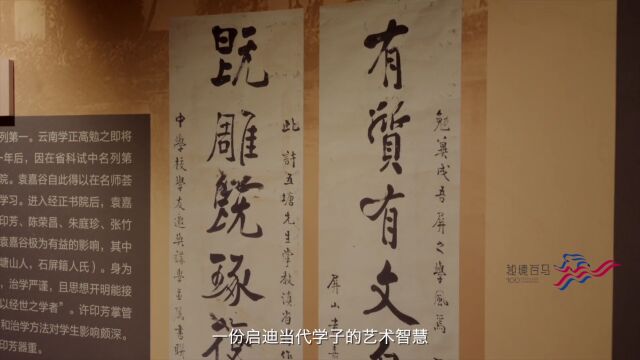 列第一。云南学正高勉之即将
一年后，因在省科试中名列第
院。袁嘉谷自此得以在名师荟
学习。进入经正书院后，袁嘉
印芳、陈荣昌、朱庭珍、张竹
袁嘉谷极为有益的影响，其中
塘山人，石屏籍人氏）。身为
，治学严谨，且思想开明能接
以经世之学者”。许印芳掌管
和治学方法对学生影响颇深。
印芳器重。
有質有文
勉冀成吾屏之學風焉
屏山
既雕既琢復
此許五塘先生掌教滇省
中學校學友邀與講學
100
一份启迪当代学子的艺术智慧